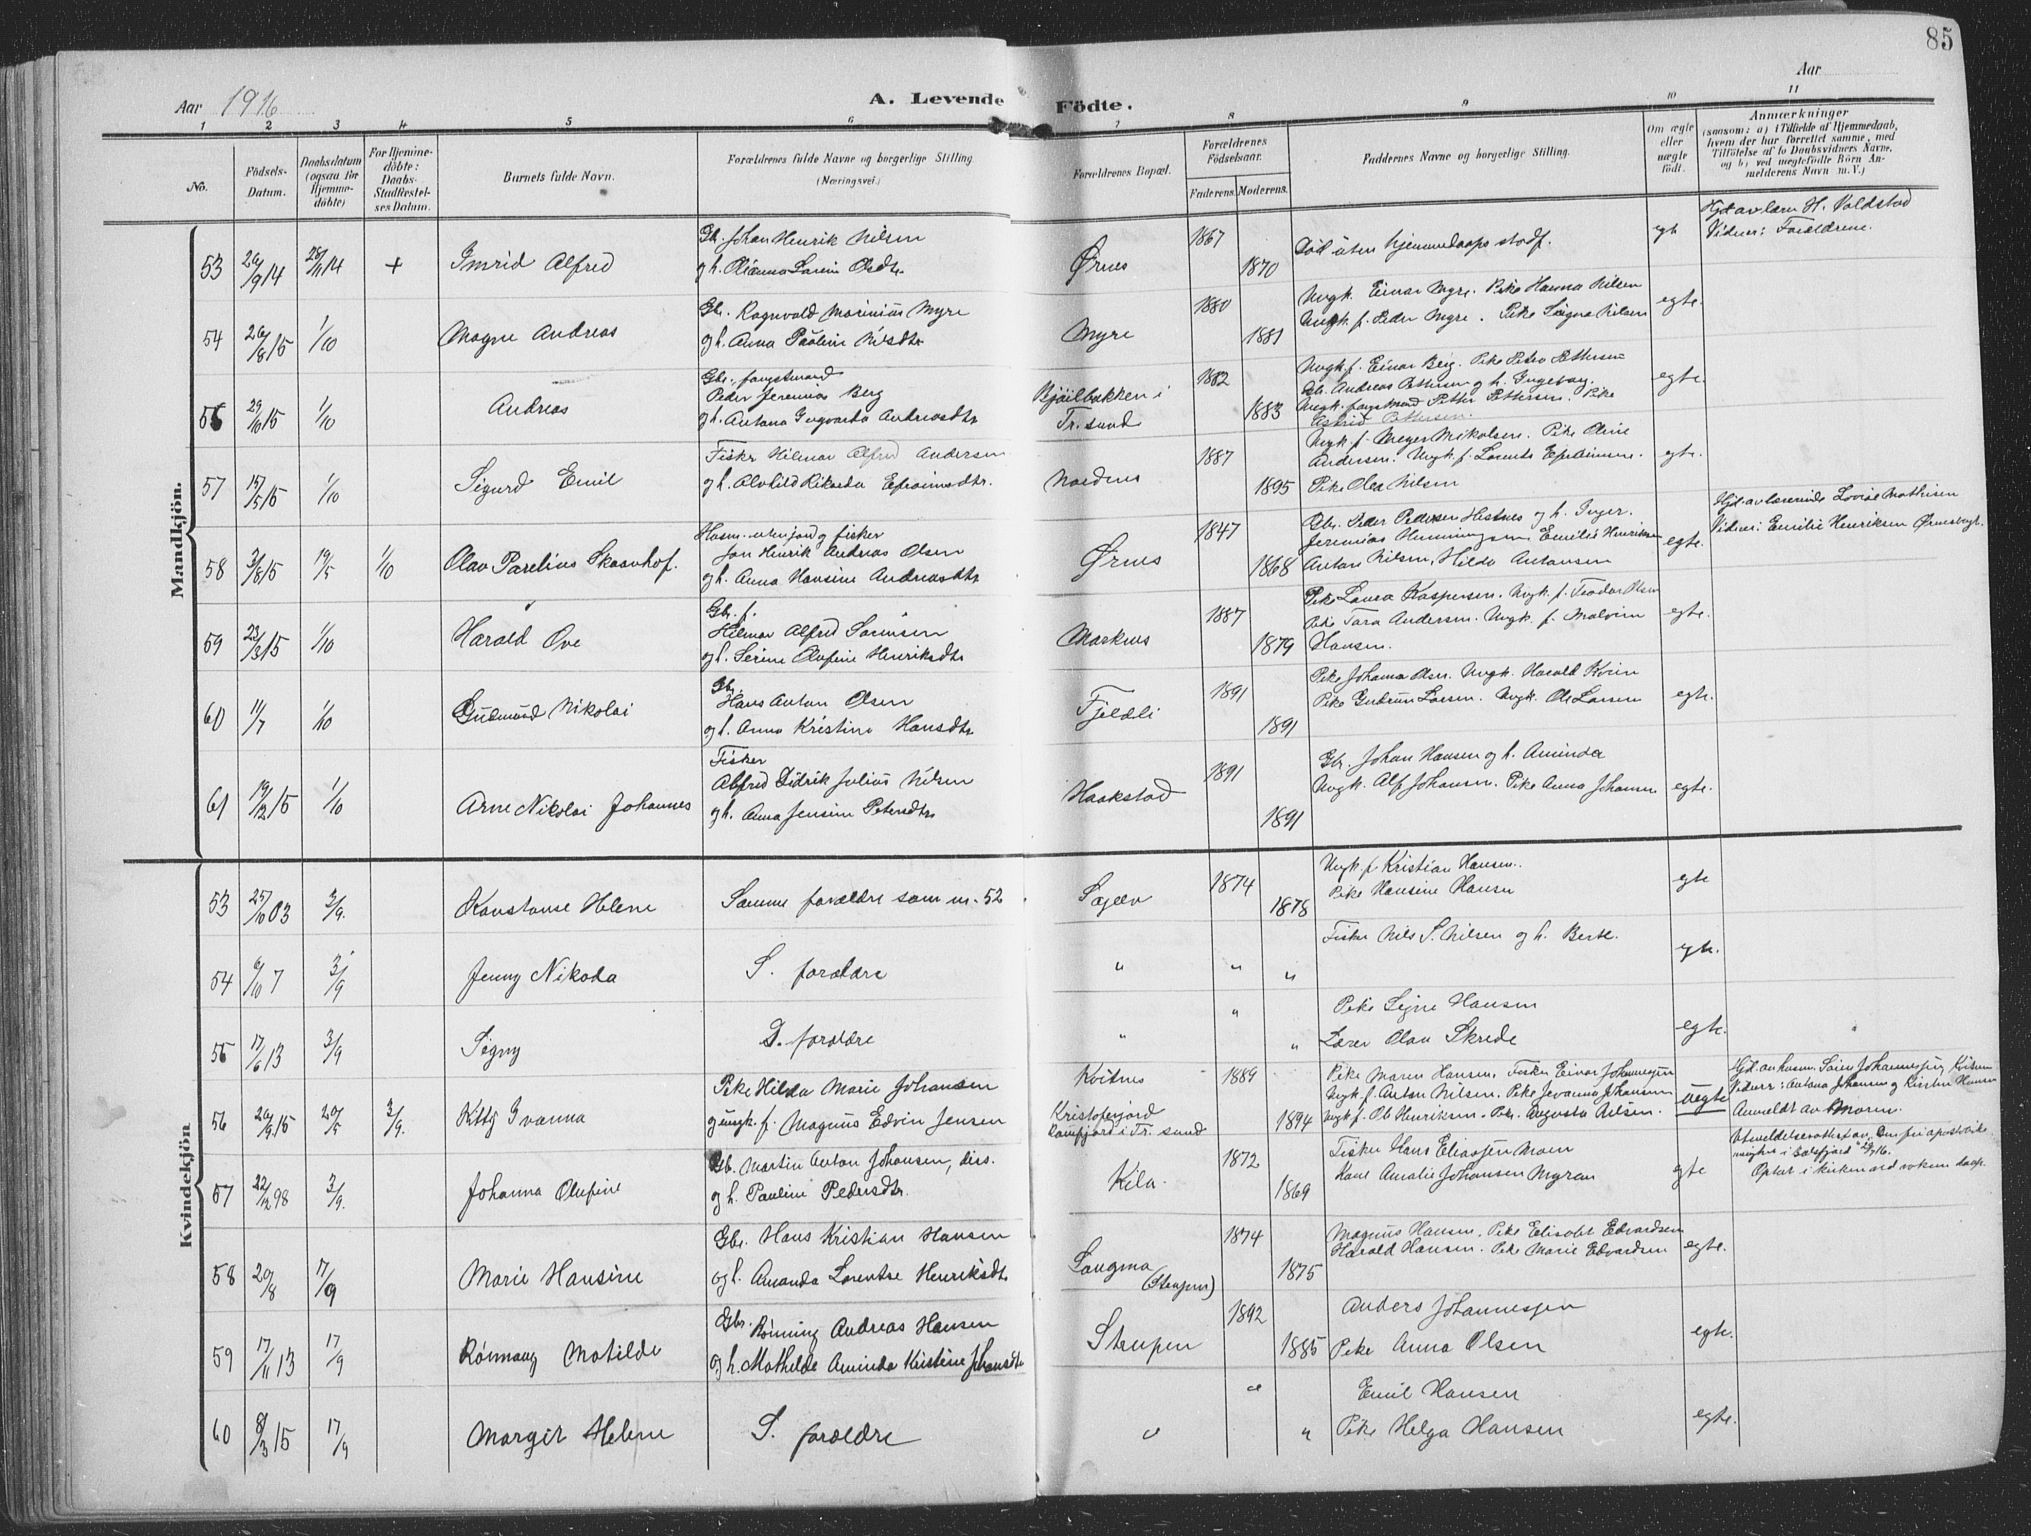 85
Aar 1916
A. Levende Födte.
Aar
1 2 3 4 5 6 7 8 9 10 11
No.
Födsels-Datum.
Daabsdatum (ogsaa for Hjemmedöbte)
For Hjemmedöbte: Daabs-Stadfæstelses Datum.
Barnets fulde Navn.
Forældrenes fulde Navne og borgerlige Stilling. (Næringsvei.)
Forældrenes Bopæl.
Forældrenes Födselsaar.
Faderens. Moderens.
Faddernes Navne og borgerlige Stilling.
Om ægte eller uægte födt.
Anmærkninger
(saasom: a) i Tilfælde af Hjemmedaab, hvem der har forrettet samme, med Tilföielse af to Daabsvidners Navne, og b) ved uægtefödte Börn Anmelderens Navn m. V.)
Mandkjön.
53 26/9 14 28/11 14 + Imrid Alfred
Gb. Johan Henrik Nilsen
og h. Olianna Larsin Olsdtr
Ørnes 1867 1870
Död uten hjemmedaaps stadf.
egte
Hjd. av lærer H. Voldstad
Vidner: Forældrene.
54 26/8 15 1/10 Magne Andreas
Gb. Ragnvald Marinius Myre
og h. Anna Pauline Nilsdtr
Myre 1880 1881
Ungk. Einar Myre. Pike Hanna Nilsen
Ungk. f. Peder Myre. Pike Signe Nilsen
egte.
55 29/6 15 1/10 Andreas
Gbr., fangstmand
Peder Jeremias Berg
og h. Antona Ingvarda Andreasdtr
i Tr. sund
1882 1883
Ungk. f. Einar Berg. Pike Petra Pettersen
Gb. Andreas Pettersen og h. Ingeborg.
Ungk. fangstmand Petter Pettersen. Pike
Astrid Pettersen.
egte.
57 15/5 15 1/10 Sigurd Emil
Fisker Hilmar Alfred Andersen
og h. Alvhild Rikarda Efraimsdtr.
Nordnes 1887 1895
Ungk. f. Meyer Mikalsen. Pike Oline
Andersen. Ungk. f. Efraimsen.
Pike Olea Nilsen
egte.
58 3/8 15 19/5 1/10 Olav Parelius Skaanhof.
Husm. uten jord og fisker
Jon Henrik Andreas Olsen
og h. Anna Hansine Andreasdtr
Ørnes 1847 1868
Gbr. Peder Pedersen Hestnes og h. Inger.
Jeremias Henningsen Emilie Henriksen
Anton Nilsen, Hilda Antonsen
egte.
Hjd. av lærerinde Lovise Mathisen
Vidner: Emilie Henriksen
59 23/3 15 1/10 Harald Ove
Gbr. f.
Hilmar Alfred Sørensen
og h. Serine Olufine Henriksdtr
Marknes 1887 1879
Pike Laura Kaspersen. Ungk. f. Teodor Olsen
Pike Tora Andersen. Ungk. f. Malvin
Hansen.
egte.
60 11/7 1/10 Gudmund Nikolai
Gbr.
Hans Anton Olsen
og h. Anna Kristine Hansdtr
Fjeldli 1891 1891
Pike Johanna Olsen. Ungk. Harald
Pike Gudrun Larsen. Ungk. Ole Larsen
egte.
61 19/12 15 1/10 Arne Nikolai Johannes
Fisker
Alfred Didrik Julius Nilsen
og h. Anna Jensine Petersdtr
Haakstad 1891 1891
Gbr. Johan Hansen og h. Aminda
Ungk. Alf Johansen. Pike Anna Johansen
egte.
Kvindekjön
53 25/10 03 3/9. Konstanse Helene
Samme forældre som nr. 52
1874 1878
Ungk. f. Kristian Hansen.
Pike Hansine Hansen
egte
54 6/10 7 3/9 Jenny Nikoda
S. forældre
" " "
Fisker Nils S. Nilsen og h. Berte.
egte.
55 17/6 13 3/9 Signy
S. forældre
" " "
Pike Signe Hansen
Lærer Olav Skrede
egte.
56 20/9 15 20/5 3/9. Kitty Ivanna
Pike Hilda Marie Johansen
og ungk. f. Magnus Edvin Jensen
Kvitnes
Kristoferjord
Ramfjord i Tr. sund
1889 1894
Pike Maren Hansen, Fisker Einar Johannesen
Ungk. f. Anton Nilsen, Pike Jovanna Johansen
Ungk. f. Ole Henriksen. Pike Augusta Nilsen.
uegte
Vidner: Antona Johansen og Kirsten Hansen
Anmeldt av moren.
57 22/2 98 3/9. Johanna Olufine
Gb. Martin Anton Johansen, diss.
og h. Pauline Pedersdtr.
Kila. 1872 1869
Fisker Hans Eliassen Moen
Kone Amalie Johansen Myran
egte
58 20/8 17/9 Marie Hansine
Gbr. Hans Kristian Hansen
og h. Amanda Lorentse Henriksdtr
Langmo
(Stenjen)
1874 1875
Magnus Hansen. Pike Elisabet Edvardsen
Harald Hansen. Pike Marie Edvardsen
egte.
59 17/11 13 17/9 Rønnaug Matilde
Gbr. Rønning Andreas Hansen
og h. Mathilde Aminda Kristine Johansdtr
1892 1885
Anders Johannesen
Pike Anna Olsen
egte.
60 8/3 15 17/9 Margit Helene
S. forældre
" " "
Emil Hansen
Pike Helga Hansen
egte.